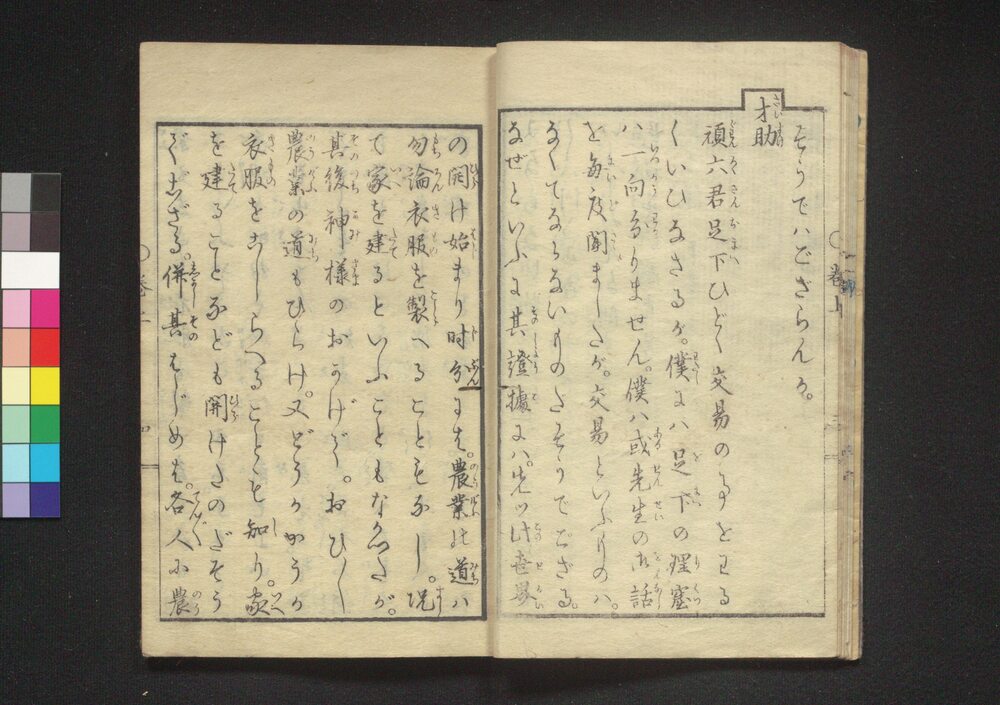 そうでハござらんか。
才助
頑六君足下ひどく交易の事をわる
くいひなさるが。僕にハ足下の理窟
ハ一向分りません。僕ハ或先生の御話
を毎度聞ましたが。交易といふものハ。
なくてならないものだそうでござる。
なぜといふに其證據にハ。先ツ此世界
の開け始まり時分にも。農業の道ハ
勿論衣服を製へることもなし。况
て家を建るといふこともなかつたが。
其後神様のおかげで。おひ〱
農業の道もひらけ。又どうかかうか
衣服をこしらへることをも知り。家
を建ることなども開けたのだそう
でござる。併其はじめも。各人に農